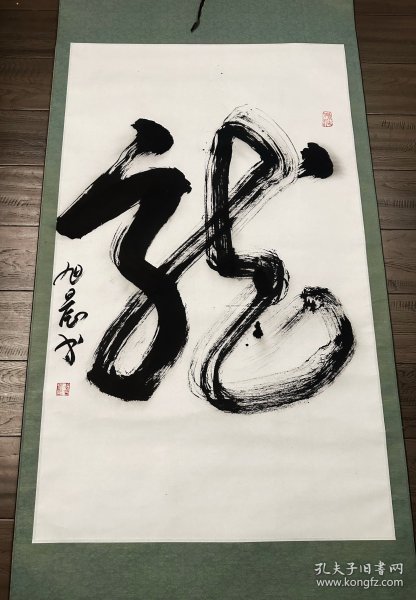 龍
旭晨书
孔夫子旧书网
www.kongfz.com